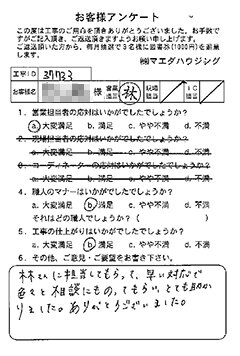 お客様アンケート
この度は工事のご用命を頂きありがとうございました。お手数で
すがご記入頂き、ご返送頂きますようお願い申し上げます。
ご返送頂いた方から、毎月抽選で3名様に図書券(1000円)を郵送
します。
㈱マエダハウジング
工事ID 37733
お客様名 様 営業担当 林 現場担当 IC担当
1. 営業担当者の応対はいかがでしたでしょうか?
a.大変満足 b.満足 c.やや不満 d.不満
2. 現場担当者の応対はいかがでしたでしょうか?
a.大変満足 b.満足 c.やや不満 d.不満
3. コーディネーターの応対はいかがでしたでしょうか?
a.大変満足 b.満足 c.やや不満 d.不満
4. 職人のマナーはいかがでしたでしょうか?
a.大変満足 b.満足 c.やや不満 d.不満
それはどの職人でしょうか?( )
5. 工事の仕上がりはいかがでしたでしょうか?
a.大変満足 b.満足 c.やや不満 d.不満
6. その他、ご意見・ご要望をお書き下さい。
林さんに担当してもらって、早い対応で
色々と相談にものってもらい、とても助か
りました。ありがとうございました。